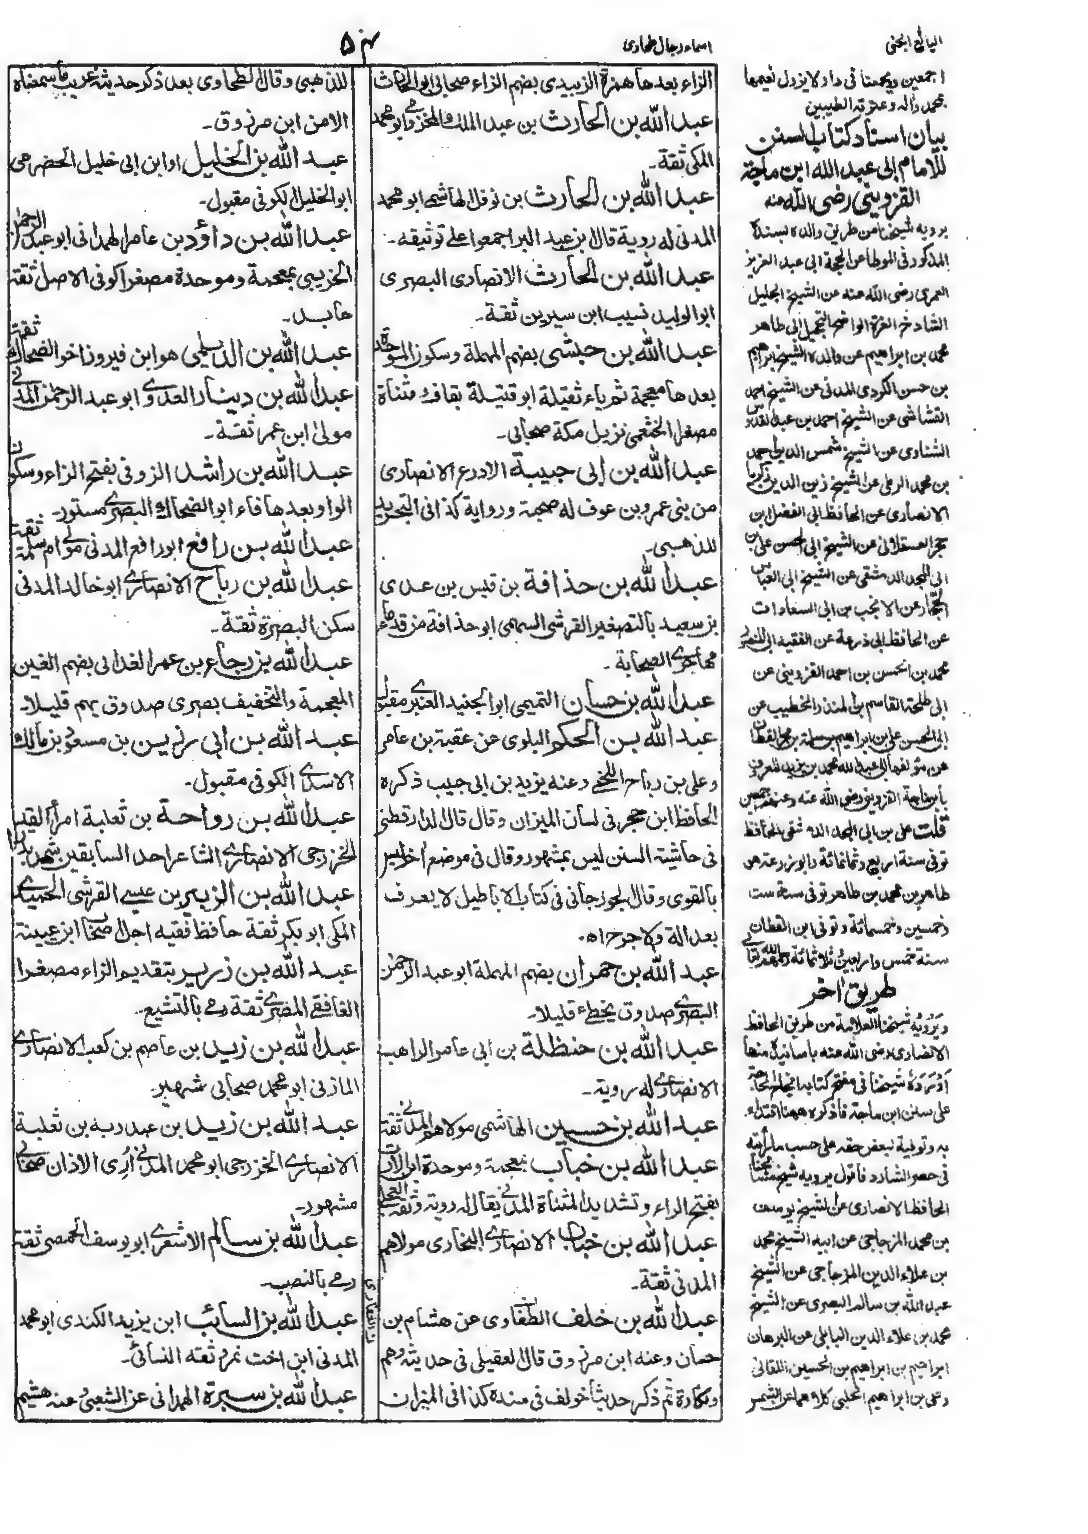 اليانع الجنى
اسماء رجال طحاوى
اجمعين ويجمعنا فى دار لا يزول نعيمها
بمحمد واله وعترته الطيبين
بيان اسناد كتاب السنن
للامام ابى عبد الله ابن ماجة
القزوينى رضى الله عنه
يرويه شيخنا من طريق والده بسنده
المذكور فى الموطا عن الحجة ابى عبد العزيز
العمرى رضى الله عنه عن الشيخ الجليل
الشادخ الغرة الواضح التحجيل ابى طاهر
محمد بن ابراهيم عن والده الشيخ ابراهيم
بن حسن الكردى المدنى عن الشيخ احمد
القشاشى عن الشيخ احمد بن عبد القدوس
الشناوى عن الشيخ شمس الدين احمد
بن محمد الرملى عن الشيخ زين الدين زكريا
الانصارى عن الحافظ ابى الفضل ابن
حجر العسقلانى عن الشيخ ابى الحسن على بن
ابى المجد الدمشقى عن الشيخ ابى العباس
الحجار عن الانجب بن ابى السعادات
عن الحافظ ابى زرعة عن الفقيه ابى المنصور
محمد بن الحسن بن احمد القزوينى عن
ابى طلحة القاسم بن المنذر الخطيب عن
ابى الحسن على بن ابراهيم بن سلمة بن بحر القطان
عن مؤلفها ابى عبد الله محمد بن يزيد المعروف
بابن ماجة القزوينى رضى الله عنه وعنهم اجمعين
قلت على بن ابى المجد الدمشقى الحافظ
توفى سنة اربع وثمانمائة وابو زرعة هو
طاهر بن محمد بن طاهر توفى سنة ست
وخمسين وخمسمائة وتوفى ابن القطان
سنة خمس واربعين وثلاثمائة رحمهم الله تعالى
طريق اخر
ويرويه شيخنا العلامة من طريق الحافظ
الانصارى رضى الله عنه باسانيد منها
على سنن ابن ماجة فاذكره ههنا اقتداء
به وتوفية لبعض حقه على حسب ما رأيته
فى حصر الشارد فاقول يرويه شيخ مشايخنا
الحافظ الانصارى عن الشيخ يوسف
بن محمد المزجاجى عن ابيه الشيخ محمد
بن علاء الدين المزجاجى عن الشيخ
عبد الله بن سالم البصرى عن الشيخ
محمد بن علاء الدين البابلى عن البرهان
ابراهيم بن ابراهيم بن الحسين اللقانى
وعلى بن ابراهيم الحلبى كلاهما عن الشمس
الزاء بعدها همزة الزبيدى بضم الزاء صحابى ابو الحارث
عبد الله بن الحارث بن عبد الملك المخزومى ابو محمد
المكى ثقة۔
عبد الله بن الحارث بن نوفل الهاشمى ابو محمد
المدنى له روية قال بن عبد البر اجمعوا على توثيقه۔
عبد الله بن الحارث الانصارى البصرى
ابو الوليد نسيب ابن سيرين ثقة۔
عبد الله بن حبشى بضم المهملة وسكون الموحدة
بعدها معجمة ثم ياء ثقيلة ابو قتيلة بقاف ومثناة
مصغر الخثعمى نزيل مكة صحابى۔
عبد الله بن ابى حبيبة الادرع الانصارى
من بنى عمرو بن عوف له صحبة ورواية كذا فى التجريد
للذهبى۔
عبد الله بن حذافة بن قيس بن عدى
بن سعيد بالتصغير القرشى السهمى ابو حذافة من قدماء
مهاجرى الصحابة۔
عبد الله بن حسان التميمى ابو الجنيد العنبرى مقبول
عبد الله بن الحكم البلوى عن عقبة بن عامر
وعلى بن رباح اللخمى وعنه يزيد بن ابى حبيب ذكره
الحافظ ابن حجر فى لسان الميزان وقال قال الدارقطنى
فى حاشيته السنن ليس بمشهور وقال فى موضع اخر ليس
بالقوى وقال الجوزجانى فى كتاب الاباطيل لا يعرف
بعدالة ولا جرح اه۔
عبد الله بن حمران بضم المهملة ابو عبد الرحمن
البصرى صدوق يخطئ قليلا۔
عبد الله بن حنظلة بن ابى عامر الراهب
الانصارى له روية۔
عبد الله بن حسين الهاشمى مولاهم المدنى ثقة
عبد الله بن خباب بمعجمة وموحدة ابن الارت
بفتح الراء وتشديد المثناة المدنى يقال له روية وثقه العجلى
عبد الله بن خباب الانصارى البخارى مولاهم
المدنى ثقة۔
عبد الله بن خلف الطفاوى عن هشام بن
حسان وعنه ابن مرزوق قال العقيلى فى حديثه وهم
ونكارة ثم ذكر حديثا خولف فى سنده كذا فى الميزان
للذهبى وقال الطحاوى بعد ذكر حديثه غريب ما سمعناه
الا من ابن مرزوق۔
عبد الله بن الخليل او ابن ابى خليل الحضرمى
ابو الخليل الكوفى مقبول۔
عبد الله بن داؤد بن عامر الهمدانى ابو عبد الرحمن
الخريبى بمعجمة وموحدة مصغرا كوفى الاصل ثقة
عابد۔
عبد الله بن الديلمى هو ابن فيروز اخو الضحاك ثقة
عبد الله بن دينار العدوى ابو عبد الرحمن المدنى
مولى ابن عمر ثقة۔
عبد الله بن راشد الزوفى بفتح الزاء وسكون
الواو بعدها فاء ابو الضحاك البصرى مستور۔
عبد الله بن رافع ابو رافع المدنى مولى ام سلمة ثقة
عبد الله بن رباح الانصارى ابو خالد المدنى
سكن البصرة ثقة۔
عبد الله بن رجاء بن عمر الغدانى بضم الغين
المعجمة والتخفيف بصرى صدوق يهم قليلا۔
عبد الله بن ابى رزين بن مسعود بن مالك
الاسدى الكوفى مقبول۔
عبد الله بن رواحة بن ثعلبة امرأ القيس
الخزرجى الانصارى الشاعر احد السابقين شهد بدرا
عبد الله بن الزبير بن عيسى القرشى الحميدى
المكى ابو بكر ثقة حافظ فقيه اجل اصحاب ابن عيينة
عبد الله بن زرير بتقديم الزاء مصغرا
الغافقى المصرى ثقة رمى بالتشيع۔
عبد الله بن زيد بن عاصم بن كعب الانصارى
المازنى ابو محمد صحابى شهير۔
عبد الله بن زيد بن عبد ربه بن ثعلبة
الانصارى الخزرجى ابو محمد المدنى أرى الاذان صحابى
مشهور۔
عبد الله بن سالم الاشعرى ابو يوسف الحمصى ثقة
رمى بالنصب۔
عبد الله بن السائب ابن يزيد الكندى ابو محمد
المدنى ابن اخت نمر وثقه النسائى۔
عبد الله بن سبرة الهمدانى عن الشعبى وعنه هشيم